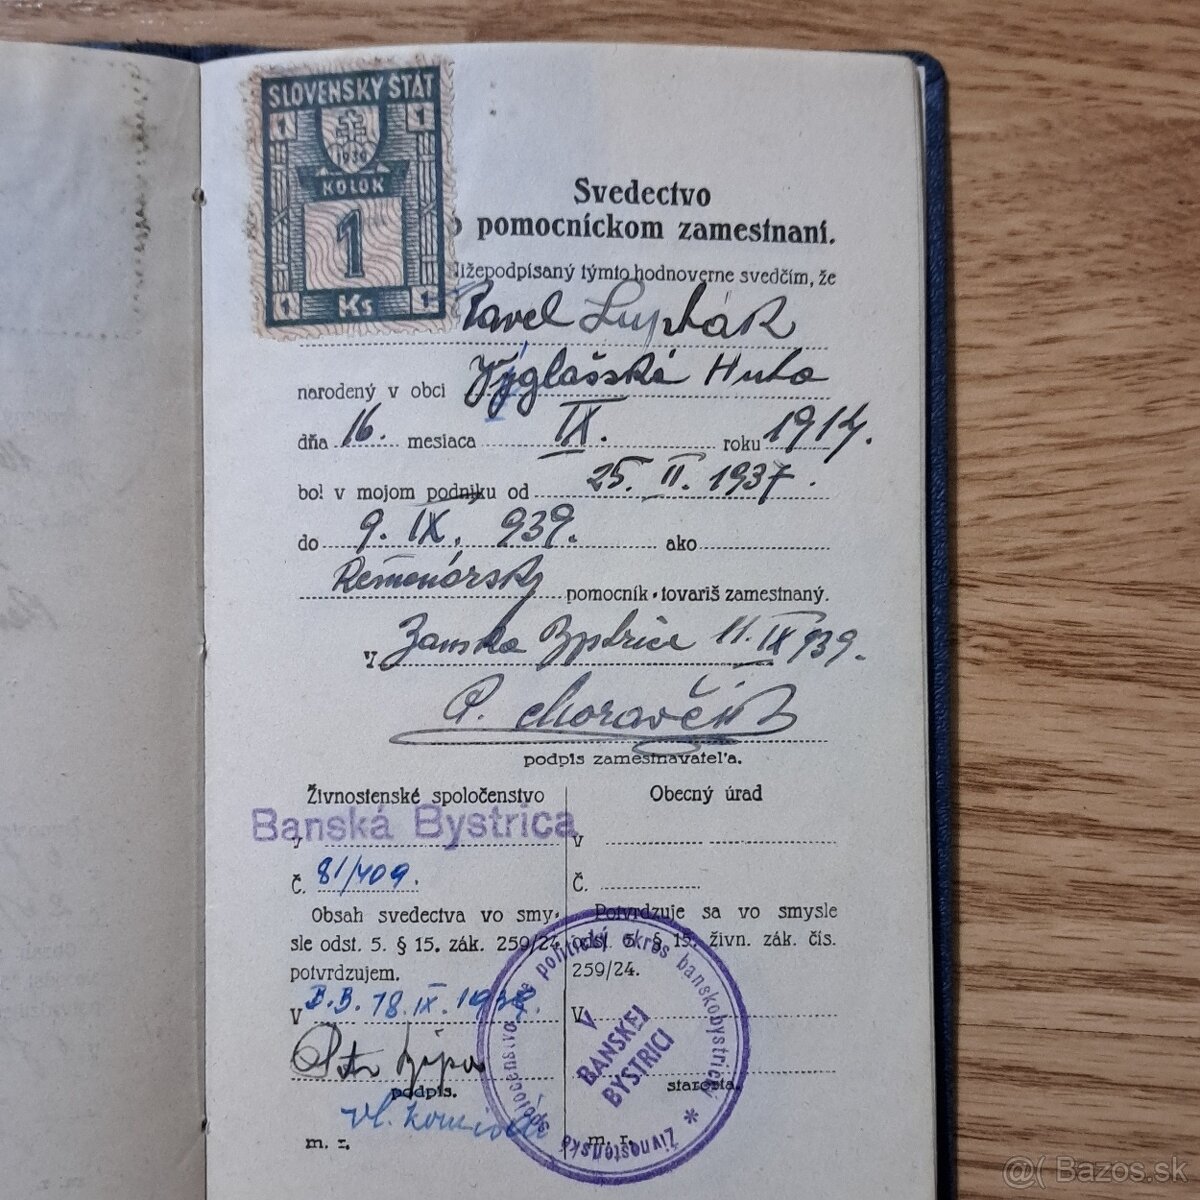 SLOVENSKÝ ŠTÁT
1 1
1939
KOLOK
1
1 Ks 1
Svedectvo
o pomocníckom zamestnaní.
Nižepodpísaný týmto hodnoverne svedčím, že
Pavel Lupták
narodený v obci Výglašská Huta
dňa 16. mesiaca IX. roku 1914.
bol v mojom podniku od 25. II. 1937.
do 9. IX. 939. ako
Remenársky pomocník - tovariš zamestnaný.
V Banska Bystrice 11. IX 939.
P. Moravčík
podpis zamestnávateľa.
Živnostenské spoločenstvo
Obecný úrad
Banská Bystrica
V
V
Č. 81/409.
Č.
Obsah svedectva vo smysle odst. 5. § 15. zák. 259/24 potvrdzujem.
Potvrdzuje sa vo smysle odst. 5. § 15. živn. zák. čís. 259/24.
V B.B. 18. IX. 1939.
V
podpis.
starosta.
m. r.
m. r.
Živnostenské spoločenstvo pre politický okres banskobystrický
V BANSKEJ BYSTRICI
@( Bazos.sk